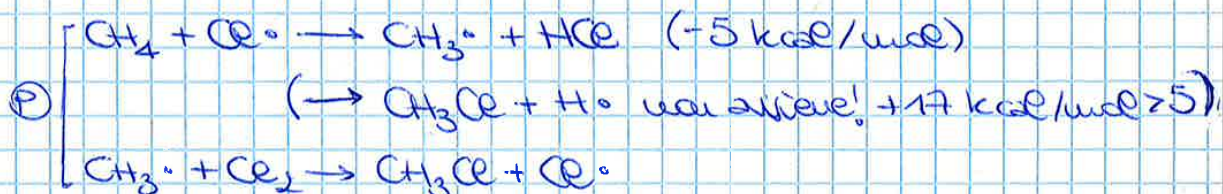 CH₄ + Cl• → CH₃• + HCl (-5 kcal/mol)
Ⓟ (→ CH₃Cl + H• non avviene! +17 kcal/mol > 5)
CH₃• + Cl₂ → CH₃Cl + Cl•